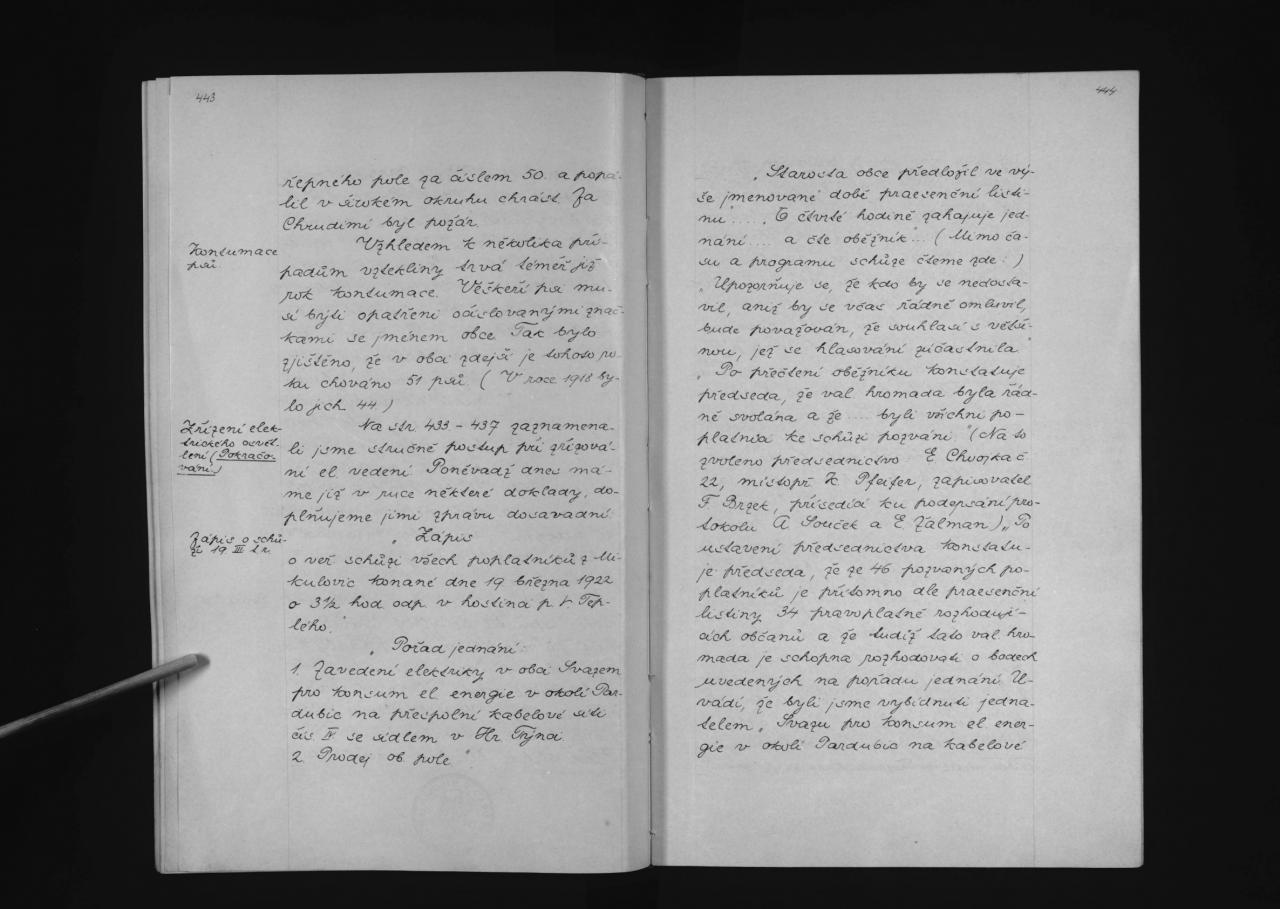 443
řepného pole za číslem 50. a popá-
lil v širokém okruhu chrást. Za
Chrudimí byl požár.
Kontumace
psů.
Vzhledem k několika pří-
padům vztekliny trvá téměř již
rok kontumace. Veškeří psi mu-
sí býti opatřeni očíslovanými znač-
kami se jménem obce. Tak bylo
zjištěno, že v obci zdejší je tohoto ro-
ku chováno 51 psů. (V roce 1918 by-
lo jich 44.)
Zřízení elek-
trického osvět-
lení (Pokračo-
vání.)
Na str. 433 - 437 zaznamena-
li jsme stručně postup při zřizová-
ní el. vedení. Poněvadž dnes má-
me již v ruce některé doklady, do-
plňujeme jimi zprávu dosavadní.
Zápis o schů-
zi 19. III. t. r.
„Zápis
o veř. schůzi všech poplatníků z Mi-
kulovic konané dne 19. března 1922
o 3½ hod. odp. v hostinci p. V. Tep-
lého.“
„Pořad jednání:
1. Zavedení elektriky v obci Svazem
pro konsum el. energie v okolí Par-
dubic na přespolní kabelové síti
čís. IV. se sídlem v Hr. Týnci.
2. Prodej ob. pole.“
444
„Starosta obce předložil ve vý-
še jmenované době praesenční listi-
nu“ .... „O čtvrté hodině zahajuje jed-
nání .... a čte oběžník“... (Mimo ča-
su a programu schůze čteme zde:)
„Upozorňuje se, že kdo by se nedosta-
vil, aniž by se včas řádně omluvil,
bude považován, že souhlasí s větši-
nou, jež se hlasování zúčastnila.“
„Po přečtení oběžníku konstatuje
předseda, že val. hromada byla řád-
ně svolána a že .... byli všichni po-
platníci ke schůzi pozváni.“ (Na to
zvoleno předsednictvo: E. Chvojka č.
22, místopř. K. Pfeifer, zapisovatel
F. Brzek, přísedící ku podepsání pro-
tokolu A. Souček a E. Zálman.) „Po
ustavení předsednictva konstatu-
je předseda, že ze 46 pozvaných po-
platníků je přítomno dle praesenční
listiny 34 pravoplatně rozhodují-
cích občanů a že tudíž tato val. hro-
mada je schopna rozhodovati o bodech
uvedených na pořadu jednání. U-
vádí, že byli jsme vybídnuti jedna-
telem „Svazu pro konsum el. ener-
gie v okolí Pardubic na kabelové